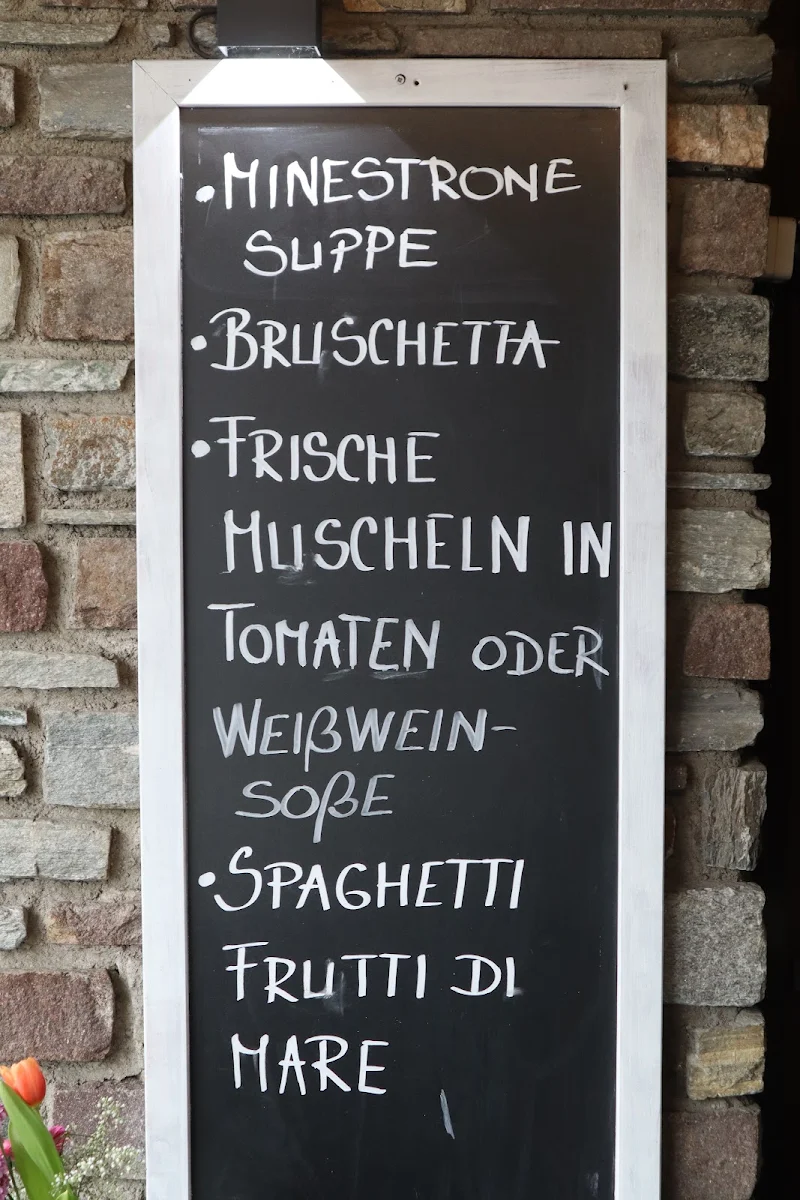 • MINESTRONE
SUPPE
• BRUSCHETTA
• FRISCHE
MUSCHELN IN
TOMATEN ODER
WEIßWEIN-
SOßE
• SPAGHETTI
FRUTTI DI
MARE